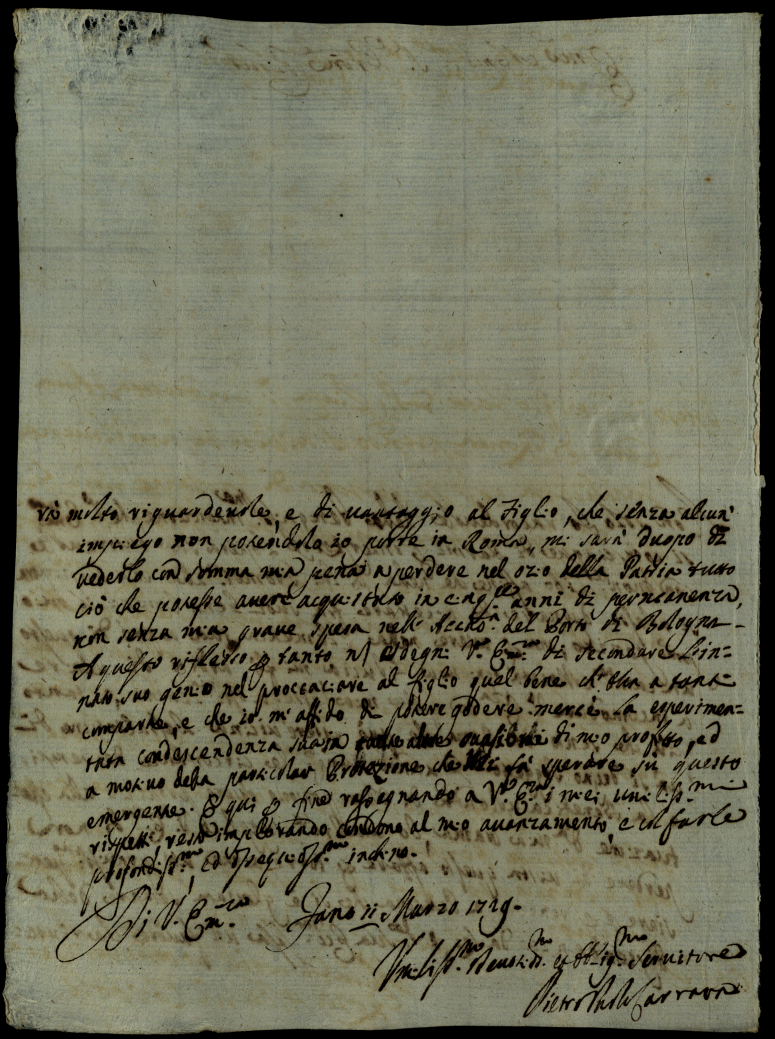 rà molto riguardevole, e di vantaggio al Figlio, che senza alcun'
impiego non potendolo io porre in Roma, mi sarà d'uopo di
vederlo con somma mia pena a perdere nel ozio della Patria tutto
ciò che potesse avere acquistato in anni di permanenza,
non senza mia grave spesa nell' del Porti di Bologna.
A questo riflesso tanto n/ isdegni V. Em.za di secondare l'in=
nato suo genio nel proccacciare al Figlio quel bene ch' Ella a tanti
comparte, e che io m'affido di potere godere mercè la esperimen=
tata condescendenza sua in di mio profitto, ed
a motivo della particolar Protezione che fà sperare su questo
emergente. E qui fine rassegnando a V. Em.za i miei umiliss.mi
rispetti, resto implorando al mio avanzamento, e in farle
profondiss.mo, ed ossequiosiss.mo inchino.
Di V. Em.za Fano 11 Marzo 1729.
Umiliss.mo Devot.mo et Obblig.mo Servitore
Pietro Paolo Carrara